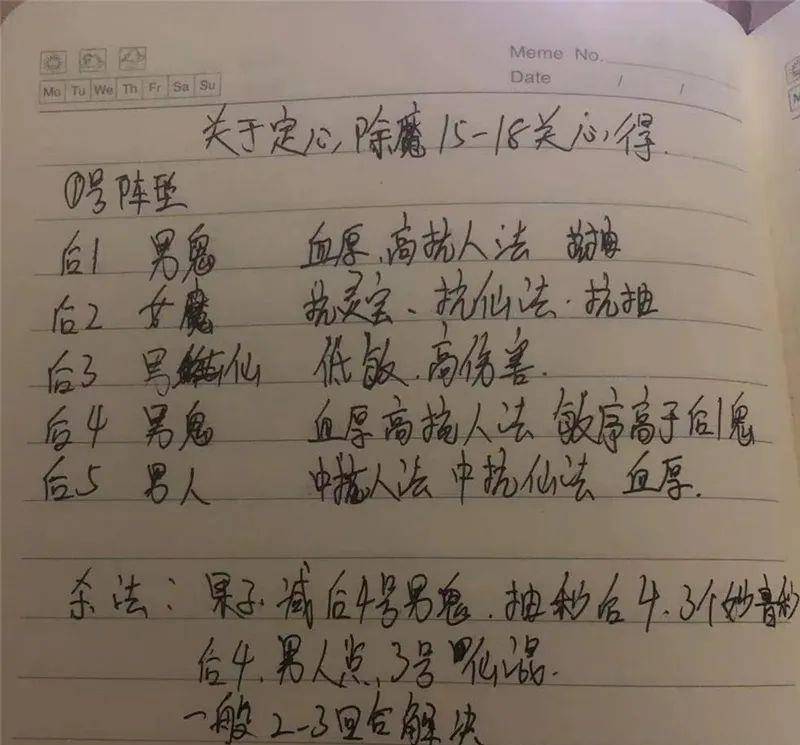 Meme No.
Date / /
Mo Tu We Th Fr Sa Su
关于定心除魔15-18关心得.
①号阵型
后1 男鬼 血厚.高抗人法
后2 女魔 抗灵宝、抗仙法.抗抽
后3 男仙 低敏.高伤害.
后4 男鬼 血厚高抗人法 敏序高于后1鬼
后5 男人 中抗人法 中抗仙法 血厚.
杀法: 果子减后4号男鬼.抽秒后4.3个妙音秒
后4.男人点.3号仙混.
一般2-3回合解决